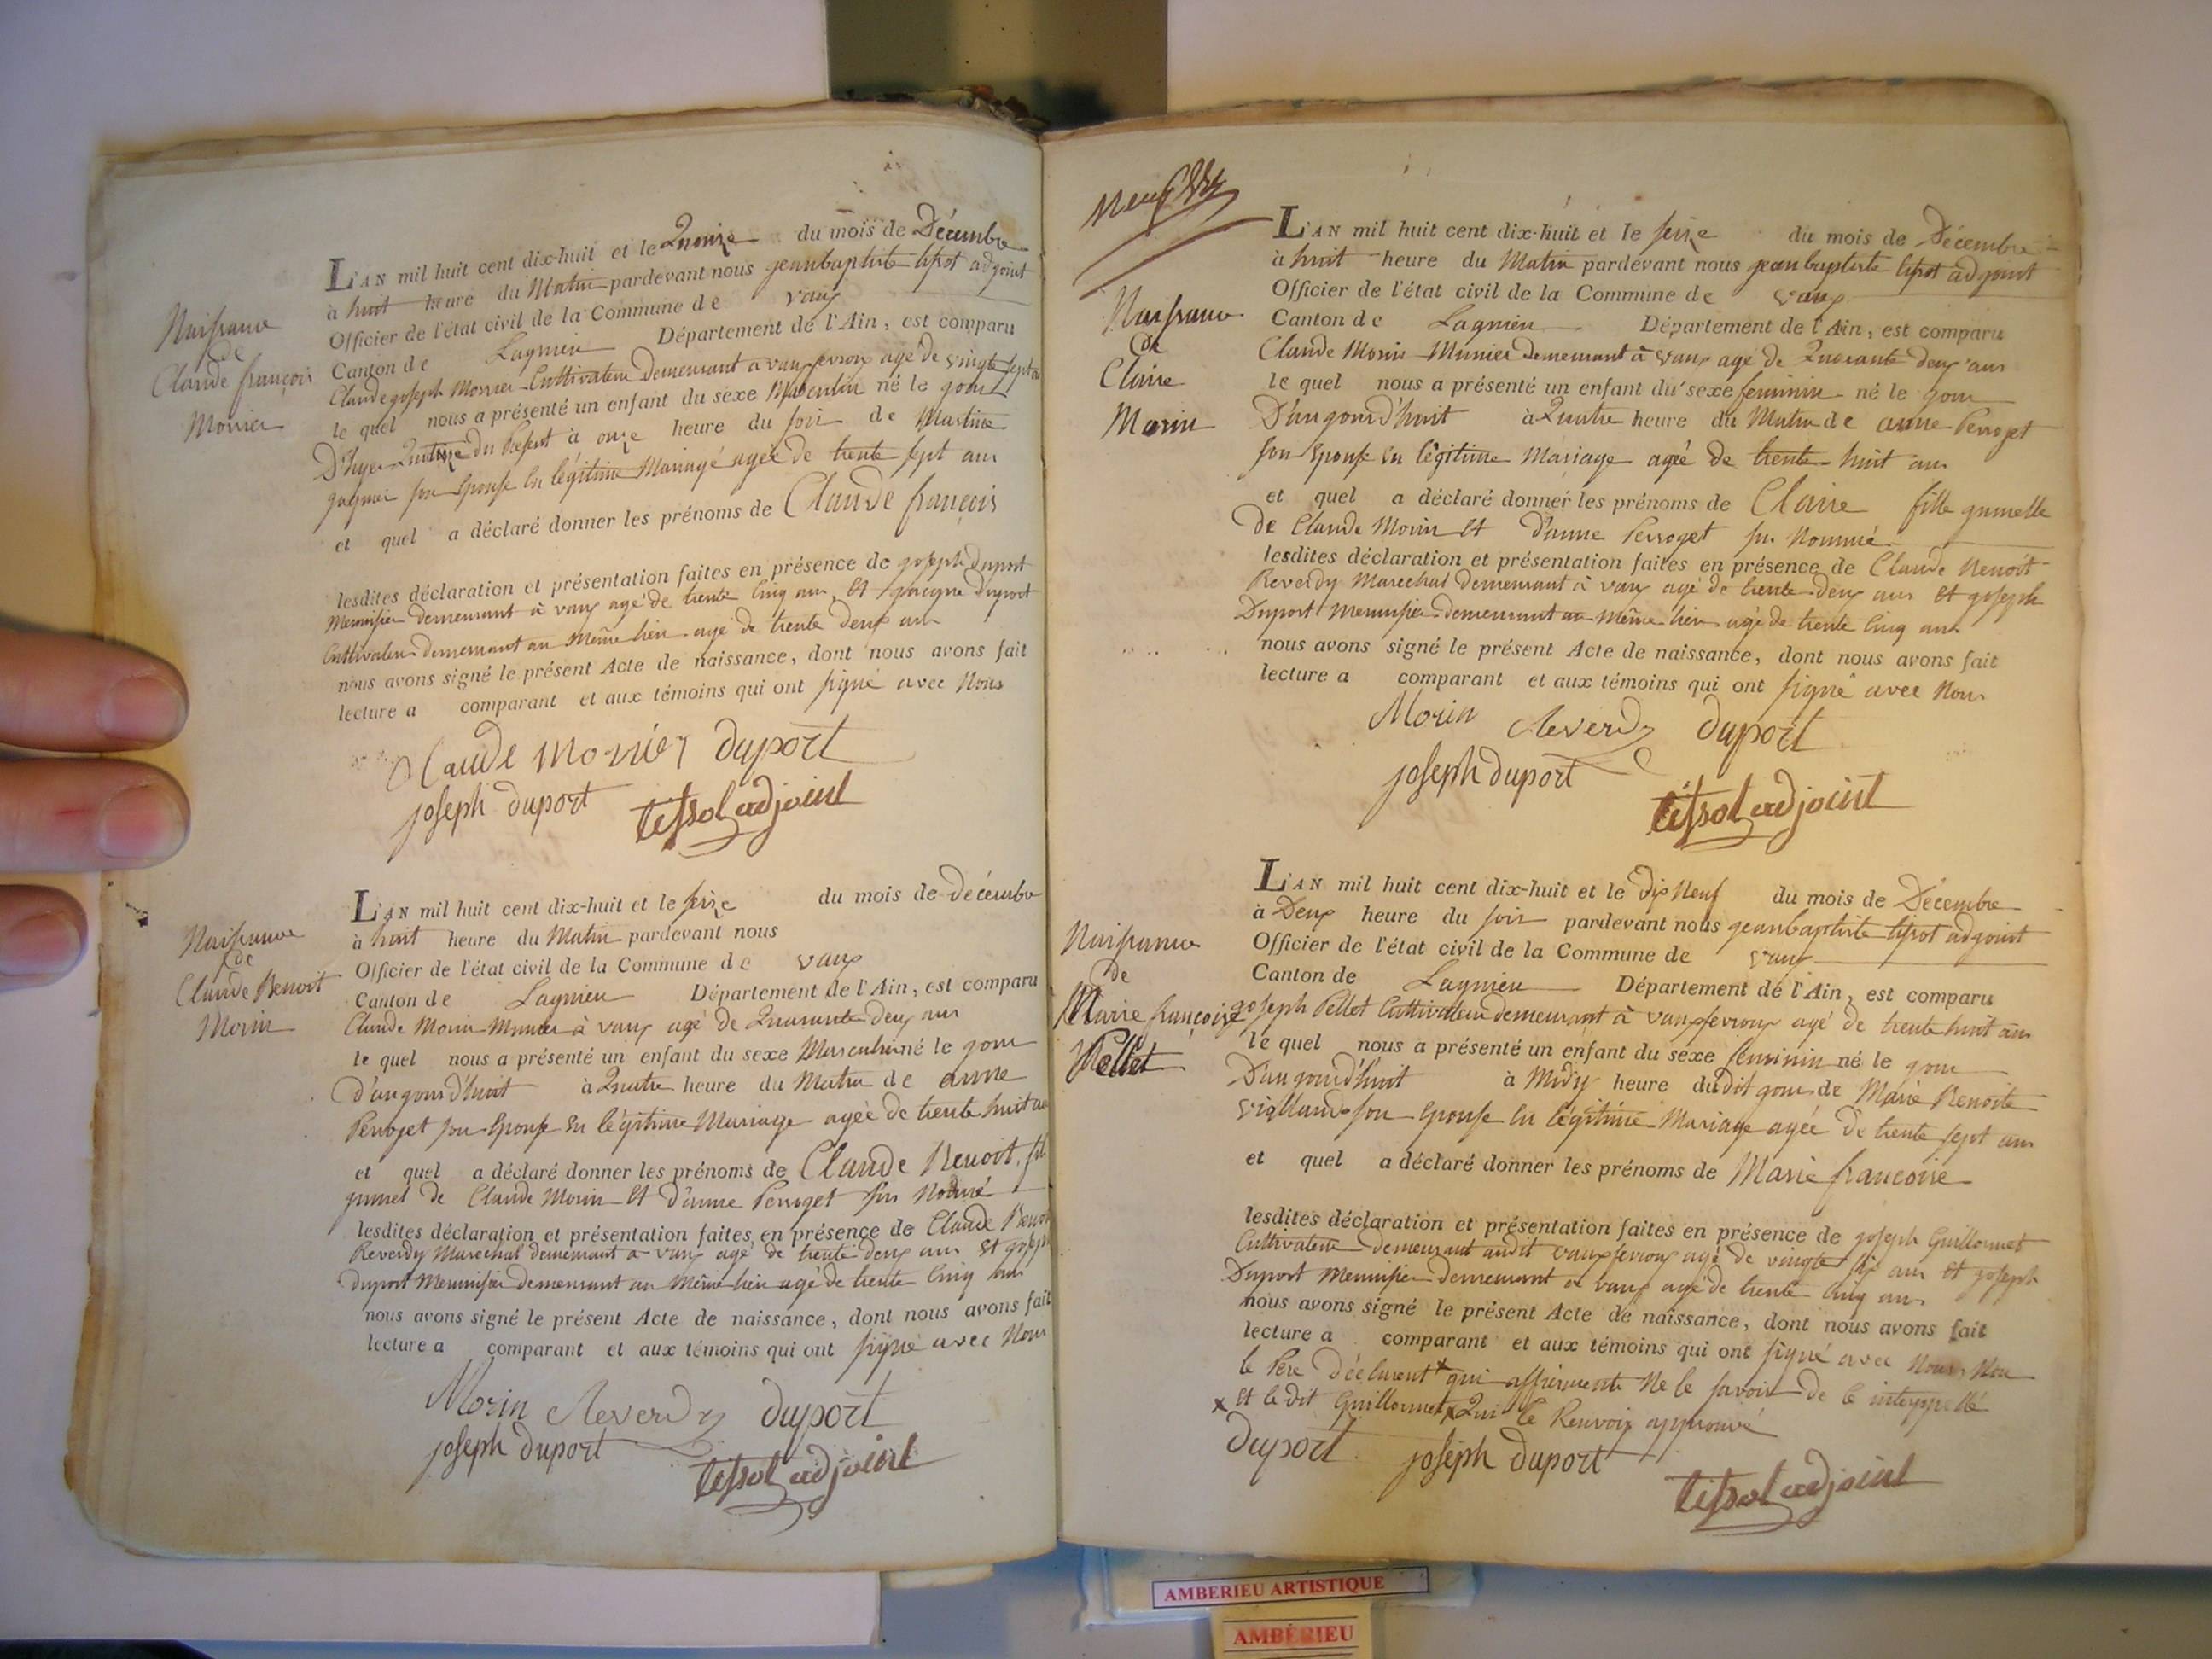 Naissance
de
Claude françois
Monier
L'AN mil huit cent dix-huit et le Quinze du mois de Décembre
à huit heure du Matin pardevant nous jeanbaptiste tissot adjoint
Officier de l'état civil de la Commune de vaux
Canton de Lagnieu Département de l'Ain, est comparu
Claude joseph Monier Cultivateur Demeurant a vaux fevroux agé de vingt sept ans
le quel nous a présenté un enfant du sexe Masculin né le jour
D'hyer du à onze heure du soir de Martine
son Epouse En légitime Mariage agée de trente sept ans
et quel a déclaré donner les prénoms de Claude françois
lesdites déclaration et présentation faites en présence de joseph duport
Menuisier demeurant à vaux agé de trente Cinq ans, Et jacque duport
Cultivateur demeurant au Même lieu agé de trente deux ans
nous avons signé le présent Acte de naissance, dont nous avons fait
lecture a comparant et aux témoins qui ont signé avec Nous
Claude monier duport
joseph duport tissot adjoint
Naissance
de
Claude Benoit
Morin
L'AN mil huit cent dix-huit et le seize du mois de décembre
à huit heure du Matin pardevant nous
Officier de l'état civil de la Commune de vaux
Canton de Lagnieu Département de l'Ain, est comparu
Claude Morin Munier à vaux agé de Quarante deux ans
le quel nous a présenté un enfant du sexe Masculin né le jour
d'aujourd'huit à Quatre heure du Matin de anne
Perroget son Epouse En légitime Mariage agée de trente huit ans
et quel a déclaré donner les prénoms de Claude Benoit, fil
jumel de Claude Morin Et d'anne Perroget sus Nommé
lesdites déclaration et présentation faites en présence de Claude Benoit
Reverdy Marechal demeurant a vaux agé de trente deux ans Et joseph
duport Menuisier demeurant au Même lieu agé de trente Cinq ans
nous avons signé le présent Acte de naissance, dont nous avons fait
lecture a comparant et aux témoins qui ont signé avec Nous
Morin Reverdy duport
joseph duport tissot adjoint
Naissance
de
Claire
Morin
L'AN mil huit cent dix-huit et le seize du mois de Décembre
à huit heure du Matin pardevant nous jean baptiste tissot adjoint
Officier de l'état civil de la Commune de vaux
Canton de Lagnieu Département de l'Ain, est comparu
Claude Morin Munier demeurant à vaux agé de Quarante deux ans
le quel nous a présenté un enfant du sexe feminin né le jour
D'aujourd'huit à Quatre heure du Matin de anne Perroget
son Epouse En légitime Mariage agée de trente huit ans
et quel a déclaré donner les prénoms de Claire fille jumelle
de Claude Morin Et d'anne Perroget sus Nommé
lesdites déclaration et présentation faites en présence de Claude Benoit
Reverdy Marechal demeurant à vaux agé de trente deux ans Et joseph
Duport Menuisier demeurant au même lieu agé de trente Cinq ans
nous avons signé le présent Acte de naissance, dont nous avons fait
lecture a comparant et aux témoins qui ont signé avec Nous
Morin Reverdy duport
joseph duport
tissot adjoint
Naissance
de
Marie françoise
Pellet
L'AN mil huit cent dix-huit et le dix Neuf du mois de Décembre
à Deux heure du soir pardevant nous jeanbaptiste tissot adjoint
Officier de l'état civil de la Commune de vaux
Canton de Lagnieu Département de l'Ain, est comparu
joseph Pellet Cultivateur demeurant à vaux fevroux agé de trente huit ans
le quel nous a présenté un enfant du sexe feminin né le jour
D'aujourd'huit à Midy heure dudit jour de Marie Benoite
son Epouse En légitime Mariage agée de trente sept ans
et quel a déclaré donner les prénoms de Marie francoise
lesdites déclaration et présentation faites en présence de joseph Guillermet
Cultivateur demeurant audit vaux fevroux agé de vingt six ans Et joseph
Duport Menuisier demeurant a vaux agé de trente Cinq ans
nous avons signé le présent Acte de naissance, dont nous avons fait
lecture a comparant et aux témoins qui ont signé avec Nous, Non
le Pere Déclarant x qui Ne le savoir de Ce interpellé
x Et le dit Guillermet le Renvoix approuvé
duport joseph duport
tissot adjoint
AMBERIEU ARTISTIQUE
AMBÉRIEU